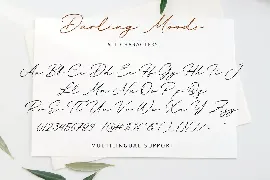 Darling Moods
Aa Bb Cc Dd Ee Ff Gg Hh Ii Jj
Kk Ll Mm Nn Oo Pp Qq
Rr Ss Tt Uu Vv Ww Xx Yy Zz
0123456789
MULTILINGUAL SUPPORT